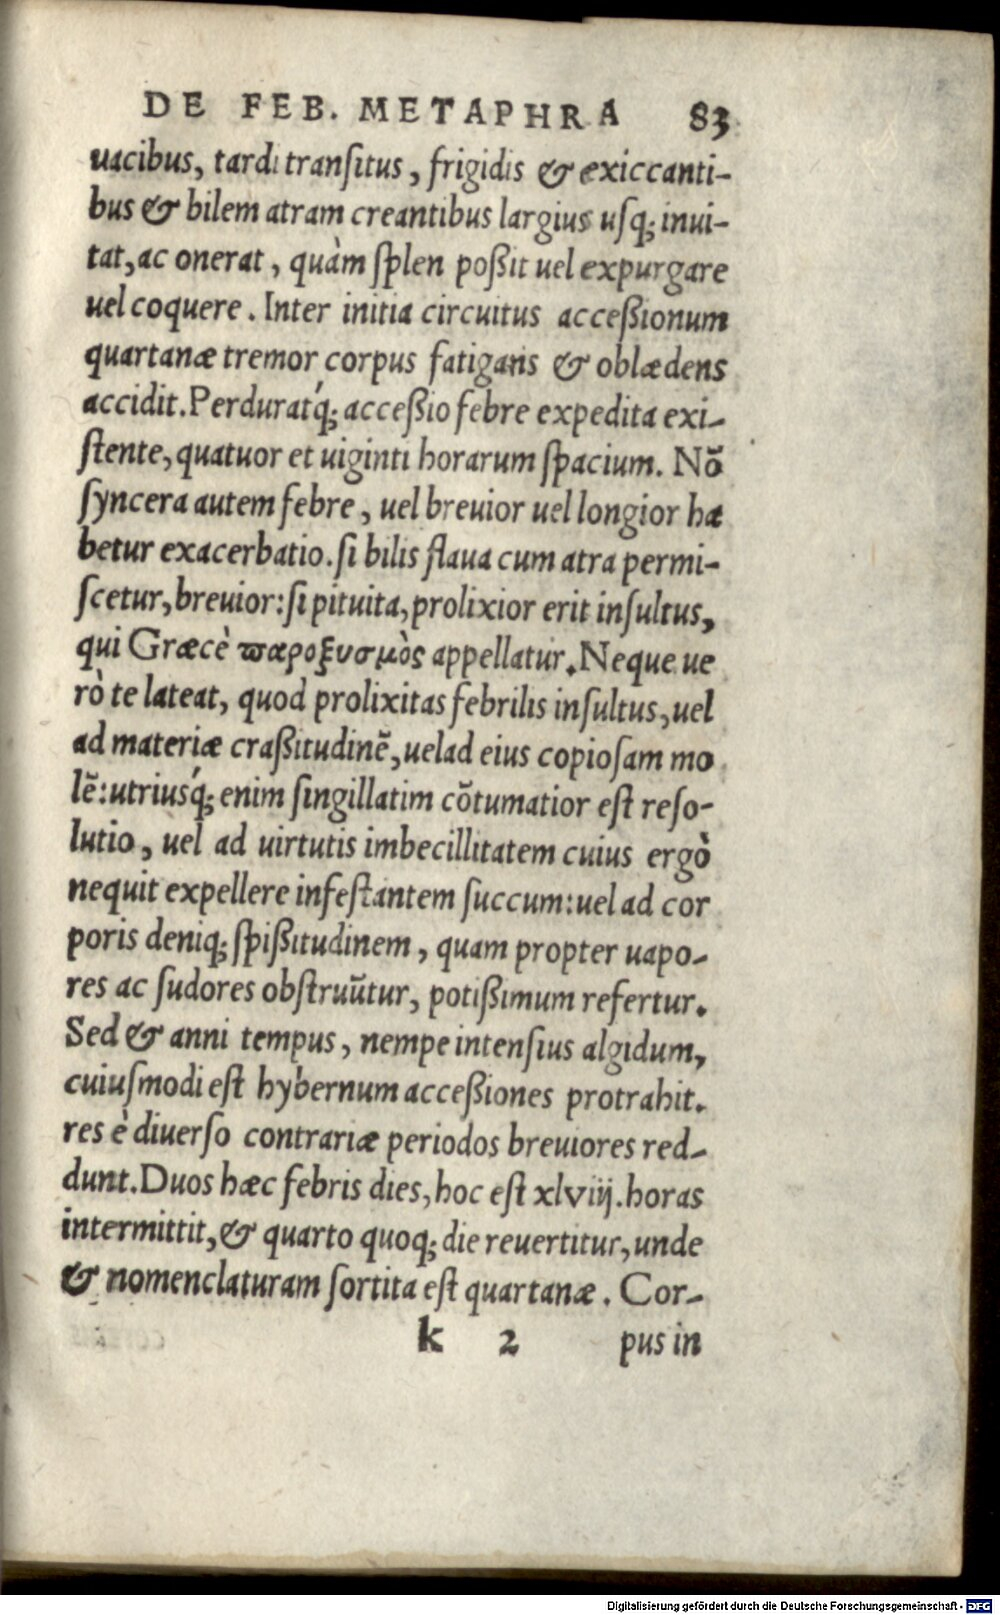 DE FEB. METAPHRA 83
uacibus, tardi transitus, frigidis & exiccanti-
bus & bilem atram creantibus largius usq; inui-
tat, ac onerat, quàm splen poßit uel expurgare
uel coquere. Inter initia circuitus acceßionum
quartanæ tremor corpus fatigans & oblædens
accidit. Perduratq́; acceßio febre expedita exi-
stente, quatuor et uiginti horarum spacium. Nō
syncera autem febre, uel breuior uel longior ha
betur exacerbatio. si bilis flaua cum atra permi-
scetur, breuior: si pituita, prolixior erit insultus,
qui Græcè παροξυσμὸς appellatur. Neque ue
rò te lateat, quod prolixitas febrilis insultus, uel
ad materiæ craßitudinē, uel ad eius copiosam mo
lē: utriusq́; enim singillatim cōtumatior est reso-
lutio, uel ad uirtutis imbecillitatem cuius ergò
nequit expellere infestantem succum: uel ad cor
poris deniq; spißitudinem, quam propter uapo-
res ac sudores obstruūtur, potißimum refertur.
Sed & anni tempus, nempe intensius algidum,
cuiusmodi est hybernum acceßiones protrahit.
res è diuerso contrariæ periodos breuiores red-
dunt. Duos hæc febris dies, hoc est xlviij. horas
intermittit, & quarto quoq; die reuertitur, unde
& nomenclaturam sortita est quartanæ. Cor-
k 2 pus in
Digitalisierung gefördert durch die Deutsche Forschungsgemeinschaft - DFG